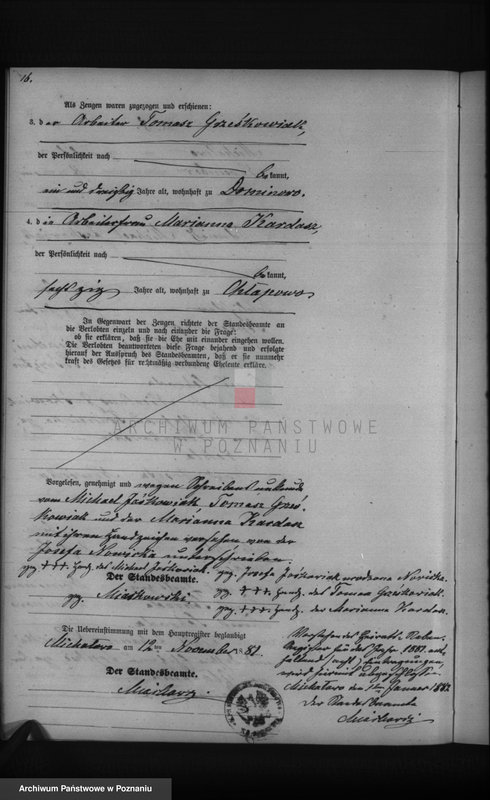 16.
Als Zeugen waren zugezogen und erschienen:
3. der Arbeiter Tomasz Grześkowiak,
der Persönlichkeit nach
bekannt,
ein und dreißig Jahre alt, wohnhaft zu Dominowo.
4. die Arbeiterfrau Marianna Kardasz,
der Persönlichkeit nach
bekannt,
sechzig Jahre alt, wohnhaft zu Chłapowo
In Gegenwart der Zeugen richtete der Standesbeamte an
die Verlobten einzeln und nach einander die Frage:
ob sie erklären, daß sie die Ehe mit einander eingehen wollen.
Die Verlobten beantworteten diese Frage bejahend und erfolgte
hierauf der Ausspruch des Standesbeamten, daß er sie nunmehr
kraft des Gesetzes für rechtmäßig verbundene Eheleute erkläre.
ARCHIWUM PAŃSTWOWE
W POZNANIU
Vorgelesen, genehmigt und wegen Schreibensunkunde
vom Michael Jóśkowiak, Tomasz Grześ-
kowiak und der Marianna Kardasz
mit ihren Handzeichen versehen von der
Josefa unterschrieben
gg. +++ Handz. des Michael Jóśkowiak. gg. Josefa Jóśkowiak
Der Standesbeamte. gg. +++ Handz. des Tomasz Grześkowiak.
gg. gg. +++ Handz. der Marianna Kardasz.
Die Uebereinstimmung mit dem Hauptregister beglaubigt
am 12ten November 1881.
Der Standesbeamte.
Vorstehendes Heirats-Neben-
Register für das Jahr 1881 ent-
haltend Eintragungen,
wird hiermit abgeschlossen.
den 1ten Januar 1882
Der Standesbeamte
Archiwum Państwowe w Poznaniu